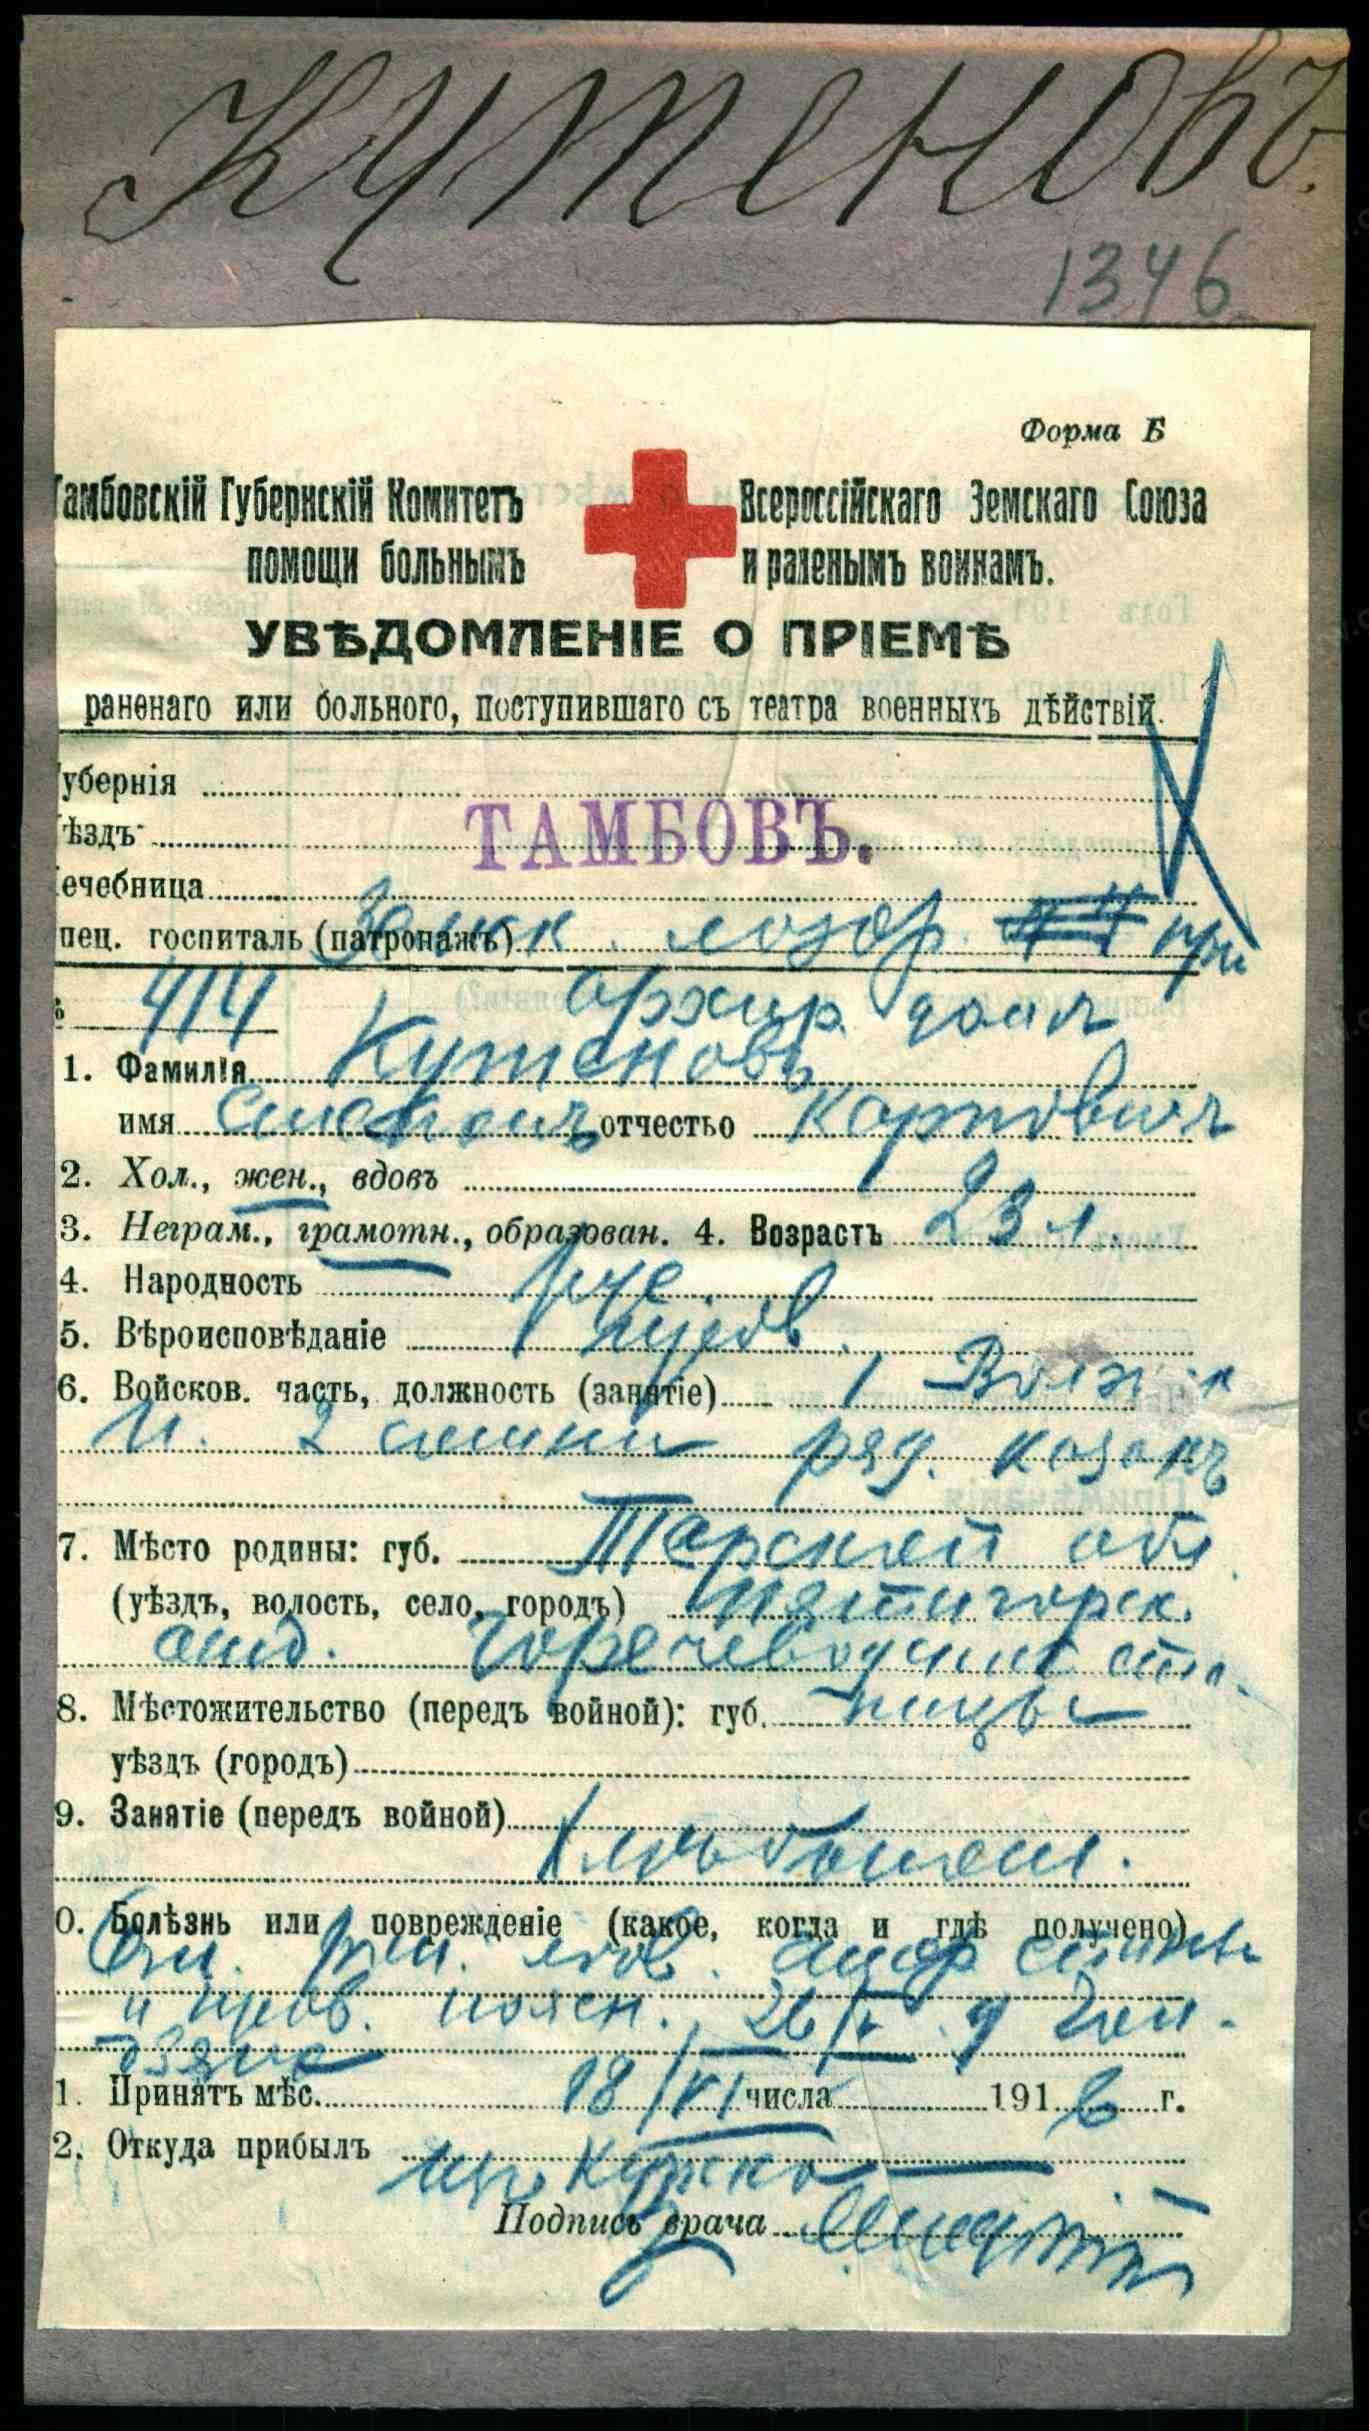 Кутеновъ.
1346
Форма Б
Тамбовскій Губернскій Комитетъ Всероссійскаго Земскаго Союза
помощи больнымъ и раненымъ воинамъ.
УВѢДОМЛЕНІЕ О ПРІЕМѢ
раненаго или больного, поступившаго съ театра военныхъ дѣйствій.
Губернія
уѣздъ ТАМБОВЪ.
Лечебница
пец. госпиталь (патронажъ) лазар. при
414 архир. домѣ
1. Фамилія Кутеновъ
имя Степанъ отчество Карповичъ
2. Хол., жен., вдовъ
3. Неграм., грамотн., образован. 4. Возрастъ 23 л
4. Народность рус.
5. Вѣроисповѣданіе прав.
6. Войсков. часть, должность (занятіе) 1 Волж.
п. 2 сотни ряд. козакъ
7. Мѣсто родины: губ. Терской обл
(уѣздъ, волость, село, городъ) Пятигорск.
отд. Горячеводчик ста
8. Мѣстожительство (передъ войной): губ. ницы
уѣздъ (городъ)
9. Занятіе (передъ войной)
хлѣбопаш.
0. Болѣзнь или поврежденіе (какое, когда и гдѣ получено)
рап. лѣв. стор спины
и прав. поясн. 26/V у
1. Принятъ мѣс. 18/VI числа 1916 г.
2. Откуда прибылъ изъ Курска
Подпись врача